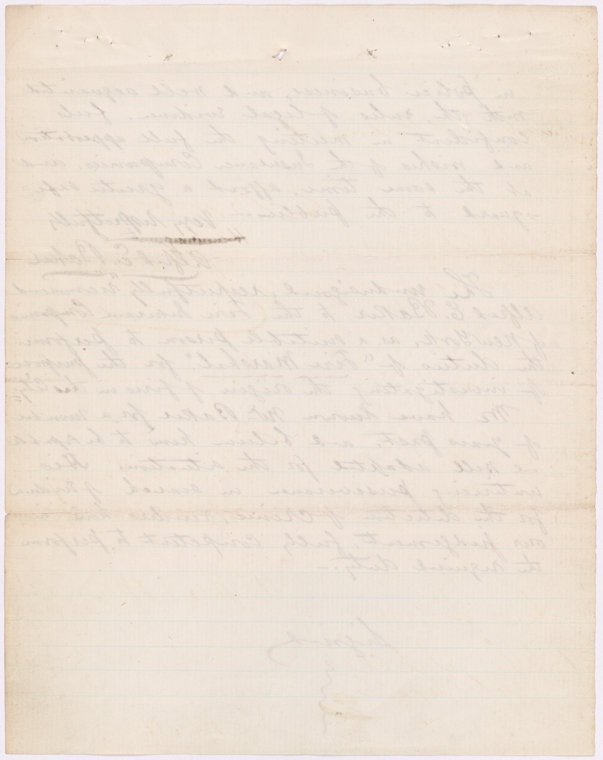 in police business, and well acquainted
with the rules of legal evidence, feels
confident in meeting the full approbation
and wishes of the Insurance Companies, and
at the same time, afford a greater safe-
guard to the public.—
Very respectfully
Alfred E. Baker
The undersigned, respectfully recommend
Alfred E. Baker to the Fire Insurance Companies
of New York, as a suitable person to perform
the duties of "Fire Marshal" for the purpose
of investigating the origin of fires in this City.
We have known Mr Baker for a number
of years past, and believe him to be
well adapted for the situation. His
untiring perseverance in search of evidence
for the detection of crime, renders him in
our judgement, fully competent to perform
the required duty.—
Signed